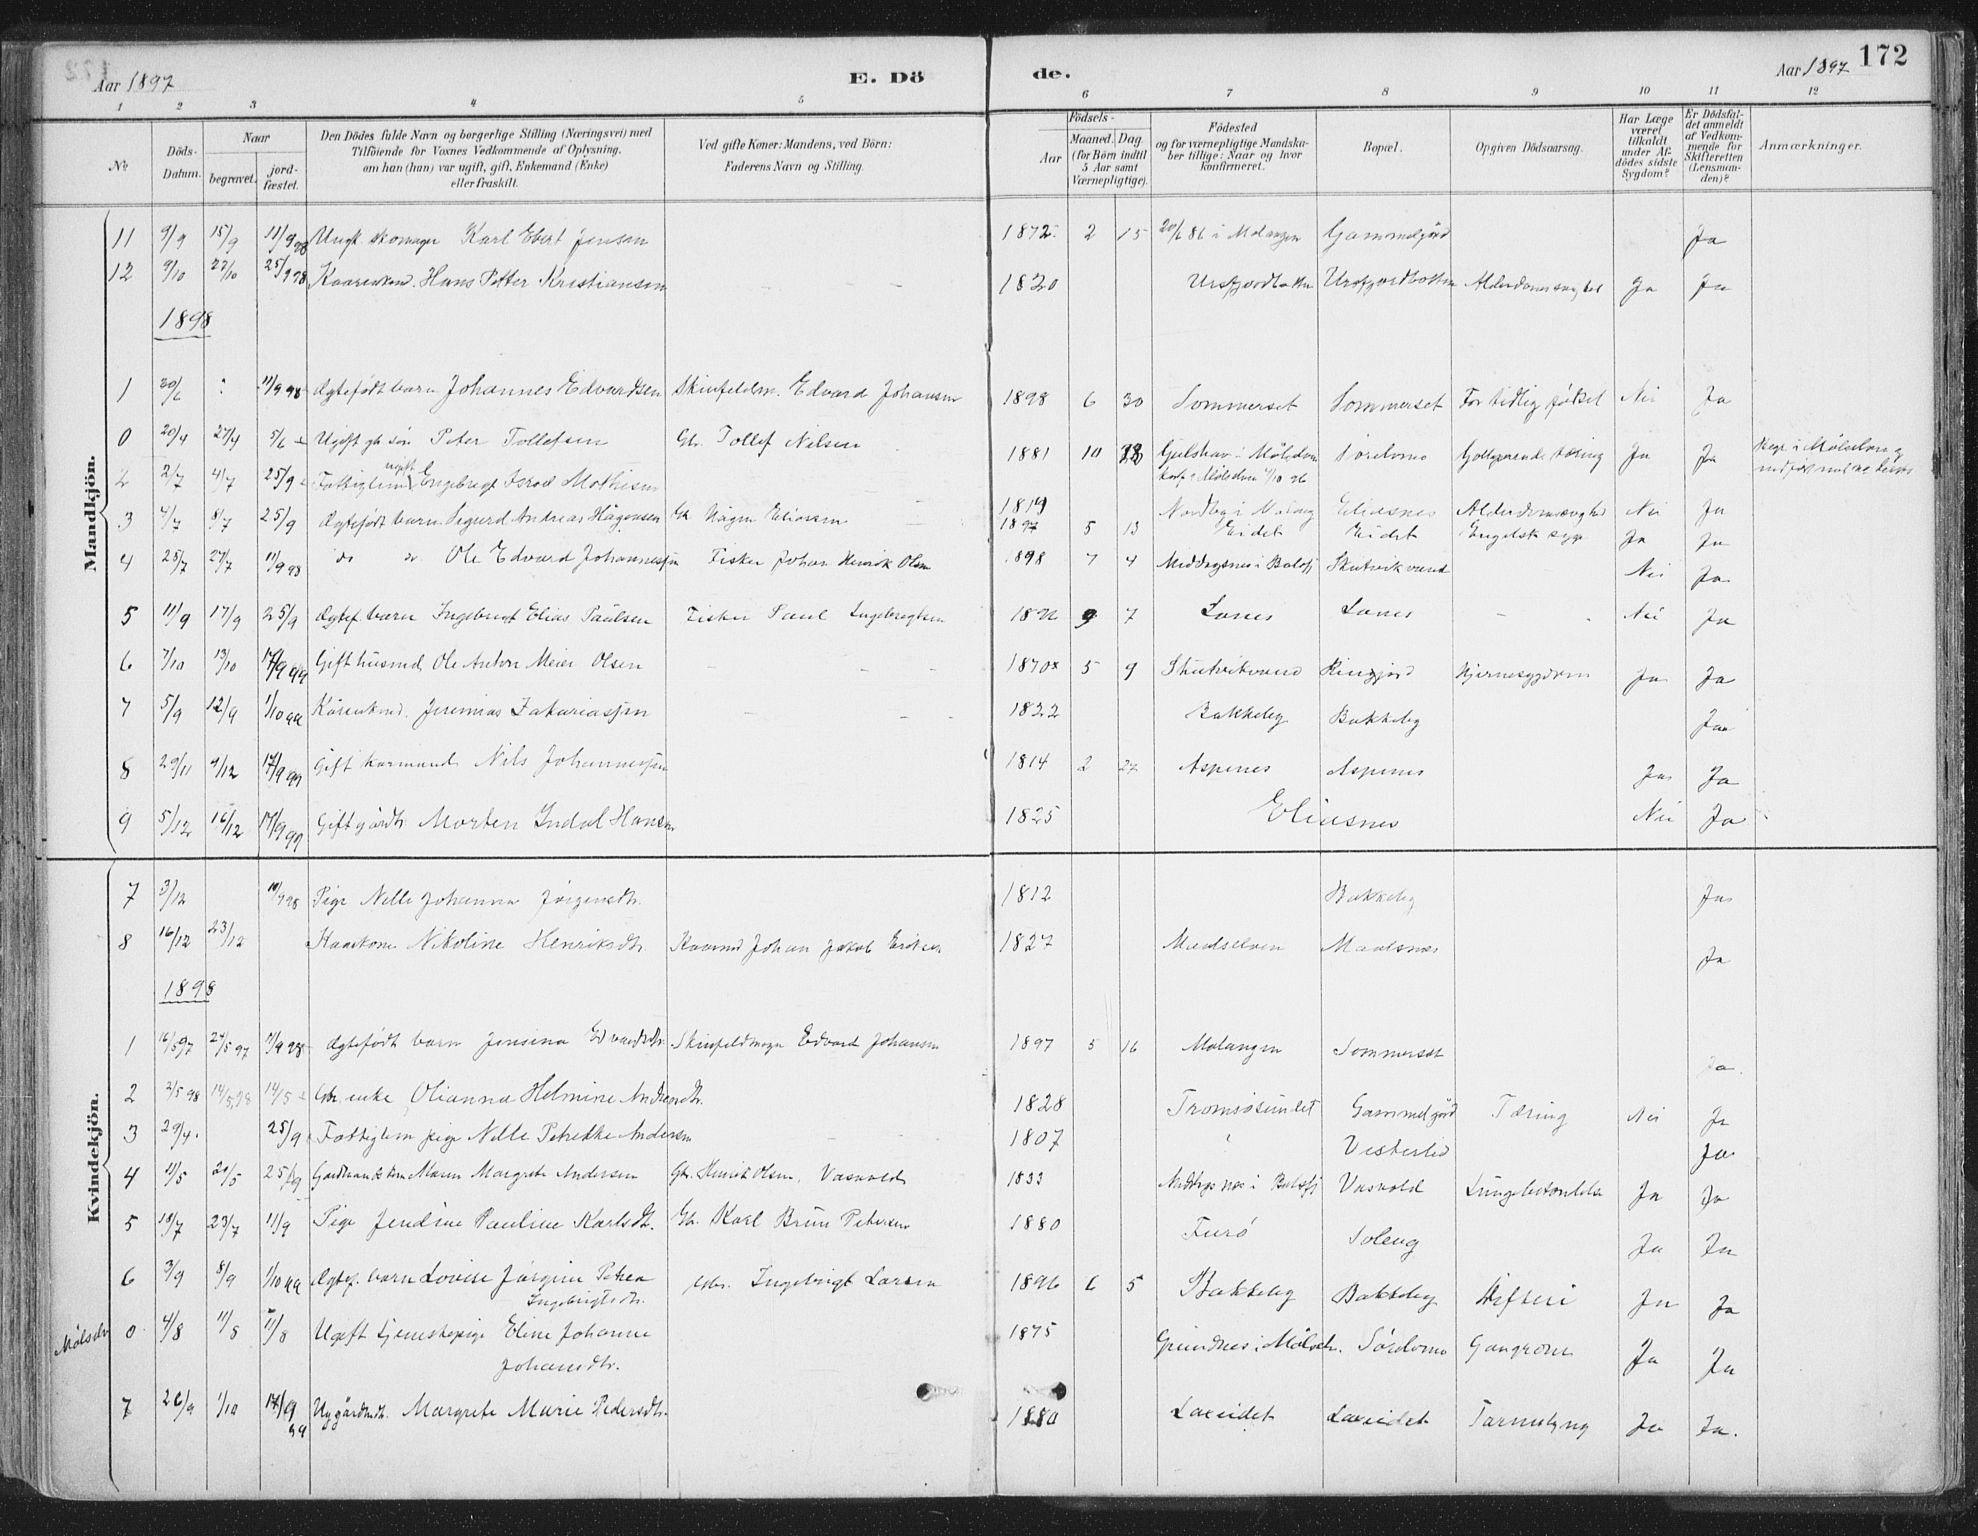 Aar 1897 E. Dö de. Aar 1897 172
1 2 3 4 5 6 7 8 9 10 11 12
No
Döds-Datum.
Naar
begravet. jordfæstet.
Den Dödes fulde Navn og borgerlige Stilling (Næringsvei) med
Tilföiende for Voxnes Vedkommende af Oplysning.
om han (hun) var ugift, gift, Enkemand (Enke)
eller fraskilt.
Ved gifte Koner: Mandens, ved Börn:
Faderens Navn og Stilling.
Födsels-
Aar Maaned. Dag.
(for Börn indtil 5 Aar samt Værnepligtige).
Födested
og for værnepligtige Mandskaber tillige: Naar og hvor konfirmeret.
Bopæl.
Opgiven Dödsaarsag.
Har Læge været tilkaldt under Afdödes sidste Sygdom?
Er Dödsfaldet anmeldt af Vedkommende for Skifteretten (Lensmanden)?
Anmærkninger.
Mandkjön.
11 9/9 15/9 11/9 98 Ungk. skomager Karl Ebert Jensen 1872 2 15 20/6 86 i Malangen Gammelgård Ja
12 9/10 27/10 25/9 98 Hans Petter Kristiansen 1820 Ursfjordbotten Ursfjordbotten Alderdomssvaghed Ja Ja
1898
1 30/6 11/9 98 Ægtefødt barn Johannes Edvardsen Edvard Johansen 1898 6 30 Sommerset Sommerset For tidlig født Nei Ja
0 20/4 27/4 5/6 Ugift gb. søn Peter Tollefsen Gb. Tollef Nilsen 1881 10 Sørelvmo Galloperende tæring Ja Ja
2 2/7 4/7 25/9 Fattiglem ugift Engebregt Israel Mathisen 1819 Nordby i Malang Eliasnes Alderdomssvaghed Nei Ja
3 4/7 8/7 25/9 Ægtefødt barn Sigurd Andreas Hågensen Gb. Hågen Eliassen 1897 5 13 Eidet Eidet Engelsk syge Ja Ja
4 25/7 27/7 11/9 98 do do Ole Edvard Johannessen Fisker Johan Henrik Olsen 1898 7 4 Middagsnes i Balsfj Skutvikvand Nei Ja
5 11/9 17/9 25/9 Ægtef. barn Ingebregt Elias Paulsen Fisker Paul Ingebregtsen 9 7 Lanes Lanes Nei Ja
6 7/10 13/10 17/9 99 Gift husmd. Ole Anton Meier Olsen 1870 5 9 Skutvikvand Hjernesygdom Ja Ja
7 5/9 12/9 1/10 99 Jeremias Zakariassen 1822 Bakkeby Bakkeby Ja
8 29/11 9/12 17/9 99 Gift karmand Nils Johannessen 1814 2 27 Aspenes Aspenes Ja Ja
9 5/12 16/12 17/9 99 Gift gårdbr Morten Indal Hansen 1825 Eliasnes Nei Ja
Kvindekjön.
7 3/12 11/9 98 Pige Nelle Johanna Jørgensdtr. 1812 Bakkeby Ja
8 16/12 23/12 Nikoline Henriksdtr. Johan Jakob Eriksen 1827 Maalselven Maalsnes Ja
1898
1 16/5 97 24/5 97 11/9 98 Ægtefødt barn Jensina Edvardsdtr. Edvard Johansen 1897 5 16 Malangen Sommerset Ja
2 2/5 98 14/5 98 14/5 Gbr. enke Olianna Helmine Andreasdtr. 1828 Tromsøsundet Gammelgård Tæring Nei Ja
3 29/4 25/9 Fattiglem pige Nelle Petrikke Andersen 1807 Vesterlid Ja
4 11/5 20/5 25/9 Maren Margrete Andersen Gbr. Henrik Olsen, Vasvold 1833 Middagsnes i Balsfj Vasvold Lungebetændelse Ja Ja
5 19/7 23/7 11/9 Pige Jendine Pauline Karlsdtr. Gb. Karl Brun Petersen 1880 Furø Soleng Ja Ja
6 3/9 8/9 1/10 99 Ægtef. barn Lovise Jørgine Petrea Ingebrigtsdtr. Gbr. Ingebrigt Larsen 1896 6 5 Bakkeby Bakkeby Difteri Ja Ja
Målselv 0 4/8 11/8 11/8 Ugift tjenestepige Eline Johanne Johansdtr. 1875 Grundnes i Målselv. Sørelvmo Gangræn Ja Ja
7 26/9 1/10 17/9 99 Margrete Marie Pedersdtr. 1880 Lakseidet Lakseidet Tarmslyng Ja Ja.